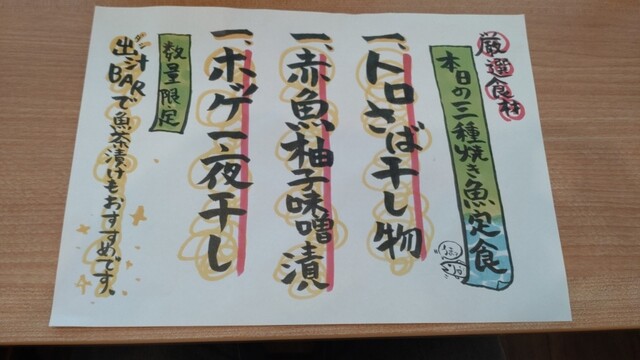 厳選食材
本日の三種焼き魚定食
一、トロさば干し物
一、赤魚柚子味噌漬
一、ホッケ一夜干し
数量限定
出汁BARで魚茶漬けもおすすめです。